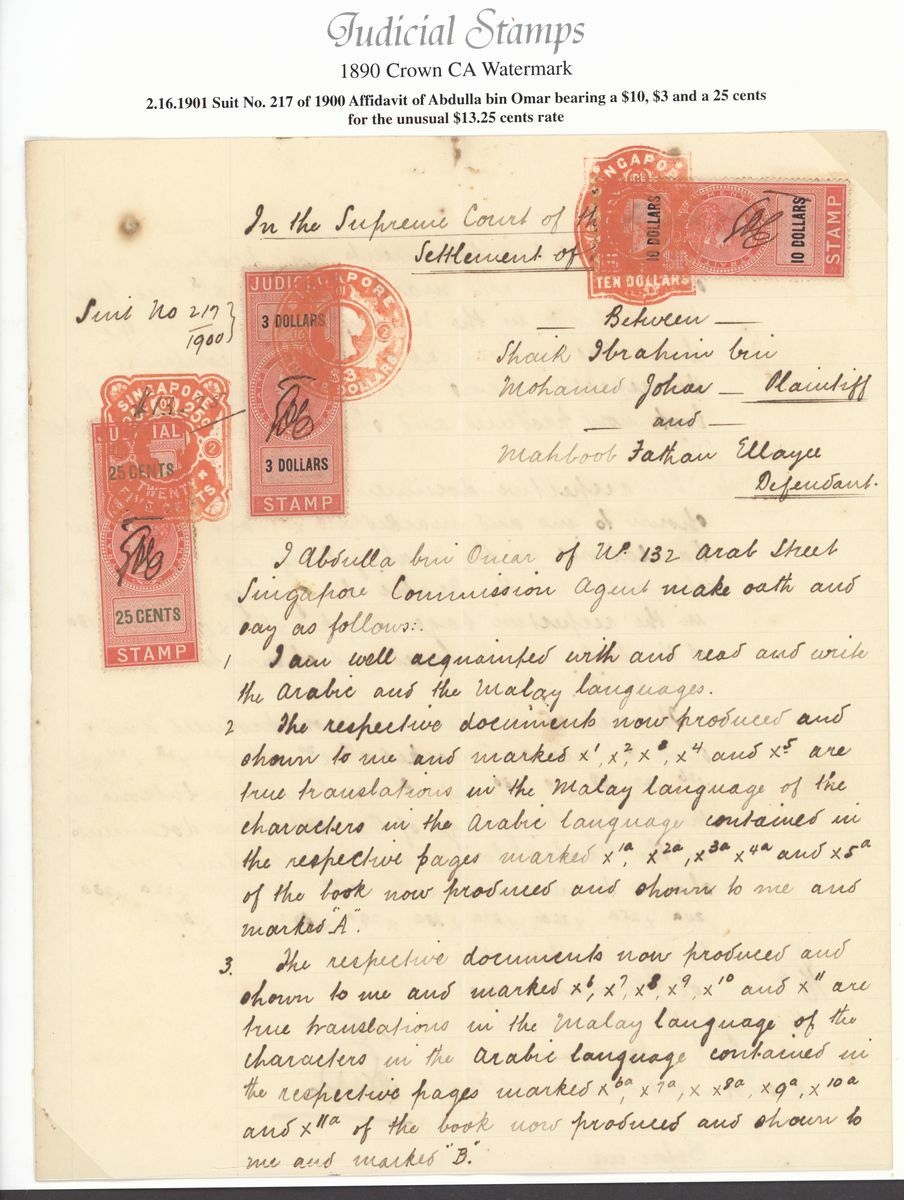 Judicial Stamps
1890 Crown CA Watermark
2.16.1901 Suit No. 217 of 1900 Affidavit of Abdulla bin Omar bearing a $10, $3 and a 25 cents
for the unusual $13.25 cents rate
In the Supreme Court of the
Settlement of
SINGAPORE
10 DOLLARS
10 DOLLARS
STAMP
TEN DOLLARS
Suit No 217
/1900
JUDICIAL
SINGAPORE
3 DOLLARS
$3
DOLLARS
3 DOLLARS
STAMP
— Between —
Shaik Ibrahim bin
Mohamed Johar — Plaintiff
— and —
Mahboob Fathau Ellayee
Defendant.
SINGAPORE
JUDICIAL
25 CENTS
TWENTY
FIVE CENTS
25 CENTS
STAMP
I Abdulla bin Omar of No. 132 Arab Street
Singapore Commission Agent make oath and
say as follows:.
1 I am well acquainted with and read and write
the Arabic and the Malay languages.
2 The respective documents now produced and
shown to me and marked x¹, x², x³, x⁴ and x⁵ are
true translations in the Malay language of the
characters in the Arabic language contained in
the respective pages marked x1a, x2a, x3a x4a and x5a
of the book now produced and shown to me and
marked "A".
3. The respective documents now produced and
shown to me and marked x⁶, x⁷, x⁸, x⁹, x¹⁰ and x¹¹ are
true translations in the Malay language of the
characters in the Arabic language contained in
the respective pages marked x6a, x7a, x x8a, x9a, x10a
and x11a of the book now produced and shown to
me and marked "B".